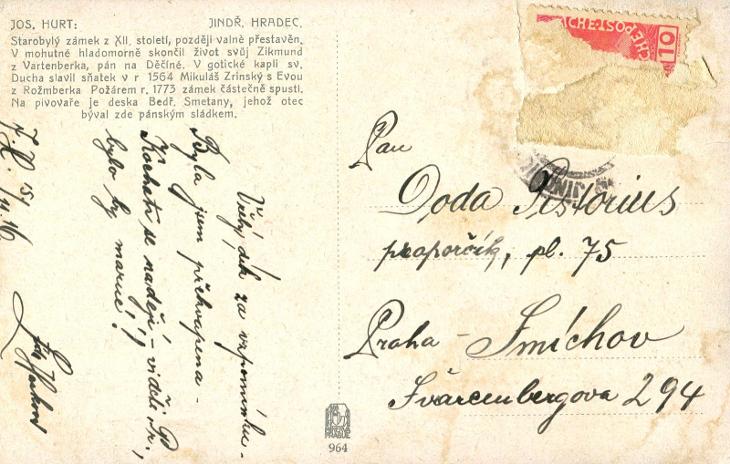 JOS. HURT: JINDŘ. HRADEC.
Starobylý zámek z XII. století, později valně přestavěn.
V mohutné hladomorně skončil život svůj Zikmund
z Vartenberka, pán na Děčíně. V gotické kapli sv.
Ducha slavil sňatek v r 1564 Mikuláš Zrinský s Evou
z Rožmberka Požárem r. 1773 zámek částečně spustl.
Na pivovaře je deska Bedř. Smetany, jehož otec
býval zde pánským sládkem.
Vřelý dík za vzpomínku -
Byla jsem překvapena -
Kochati se nadějí - viděti P.,
bylo by marné!
Pan
Doda Pistorius
praporčík, pl. 75
Praha - Smíchov
Švarcenbergova 294
10
964